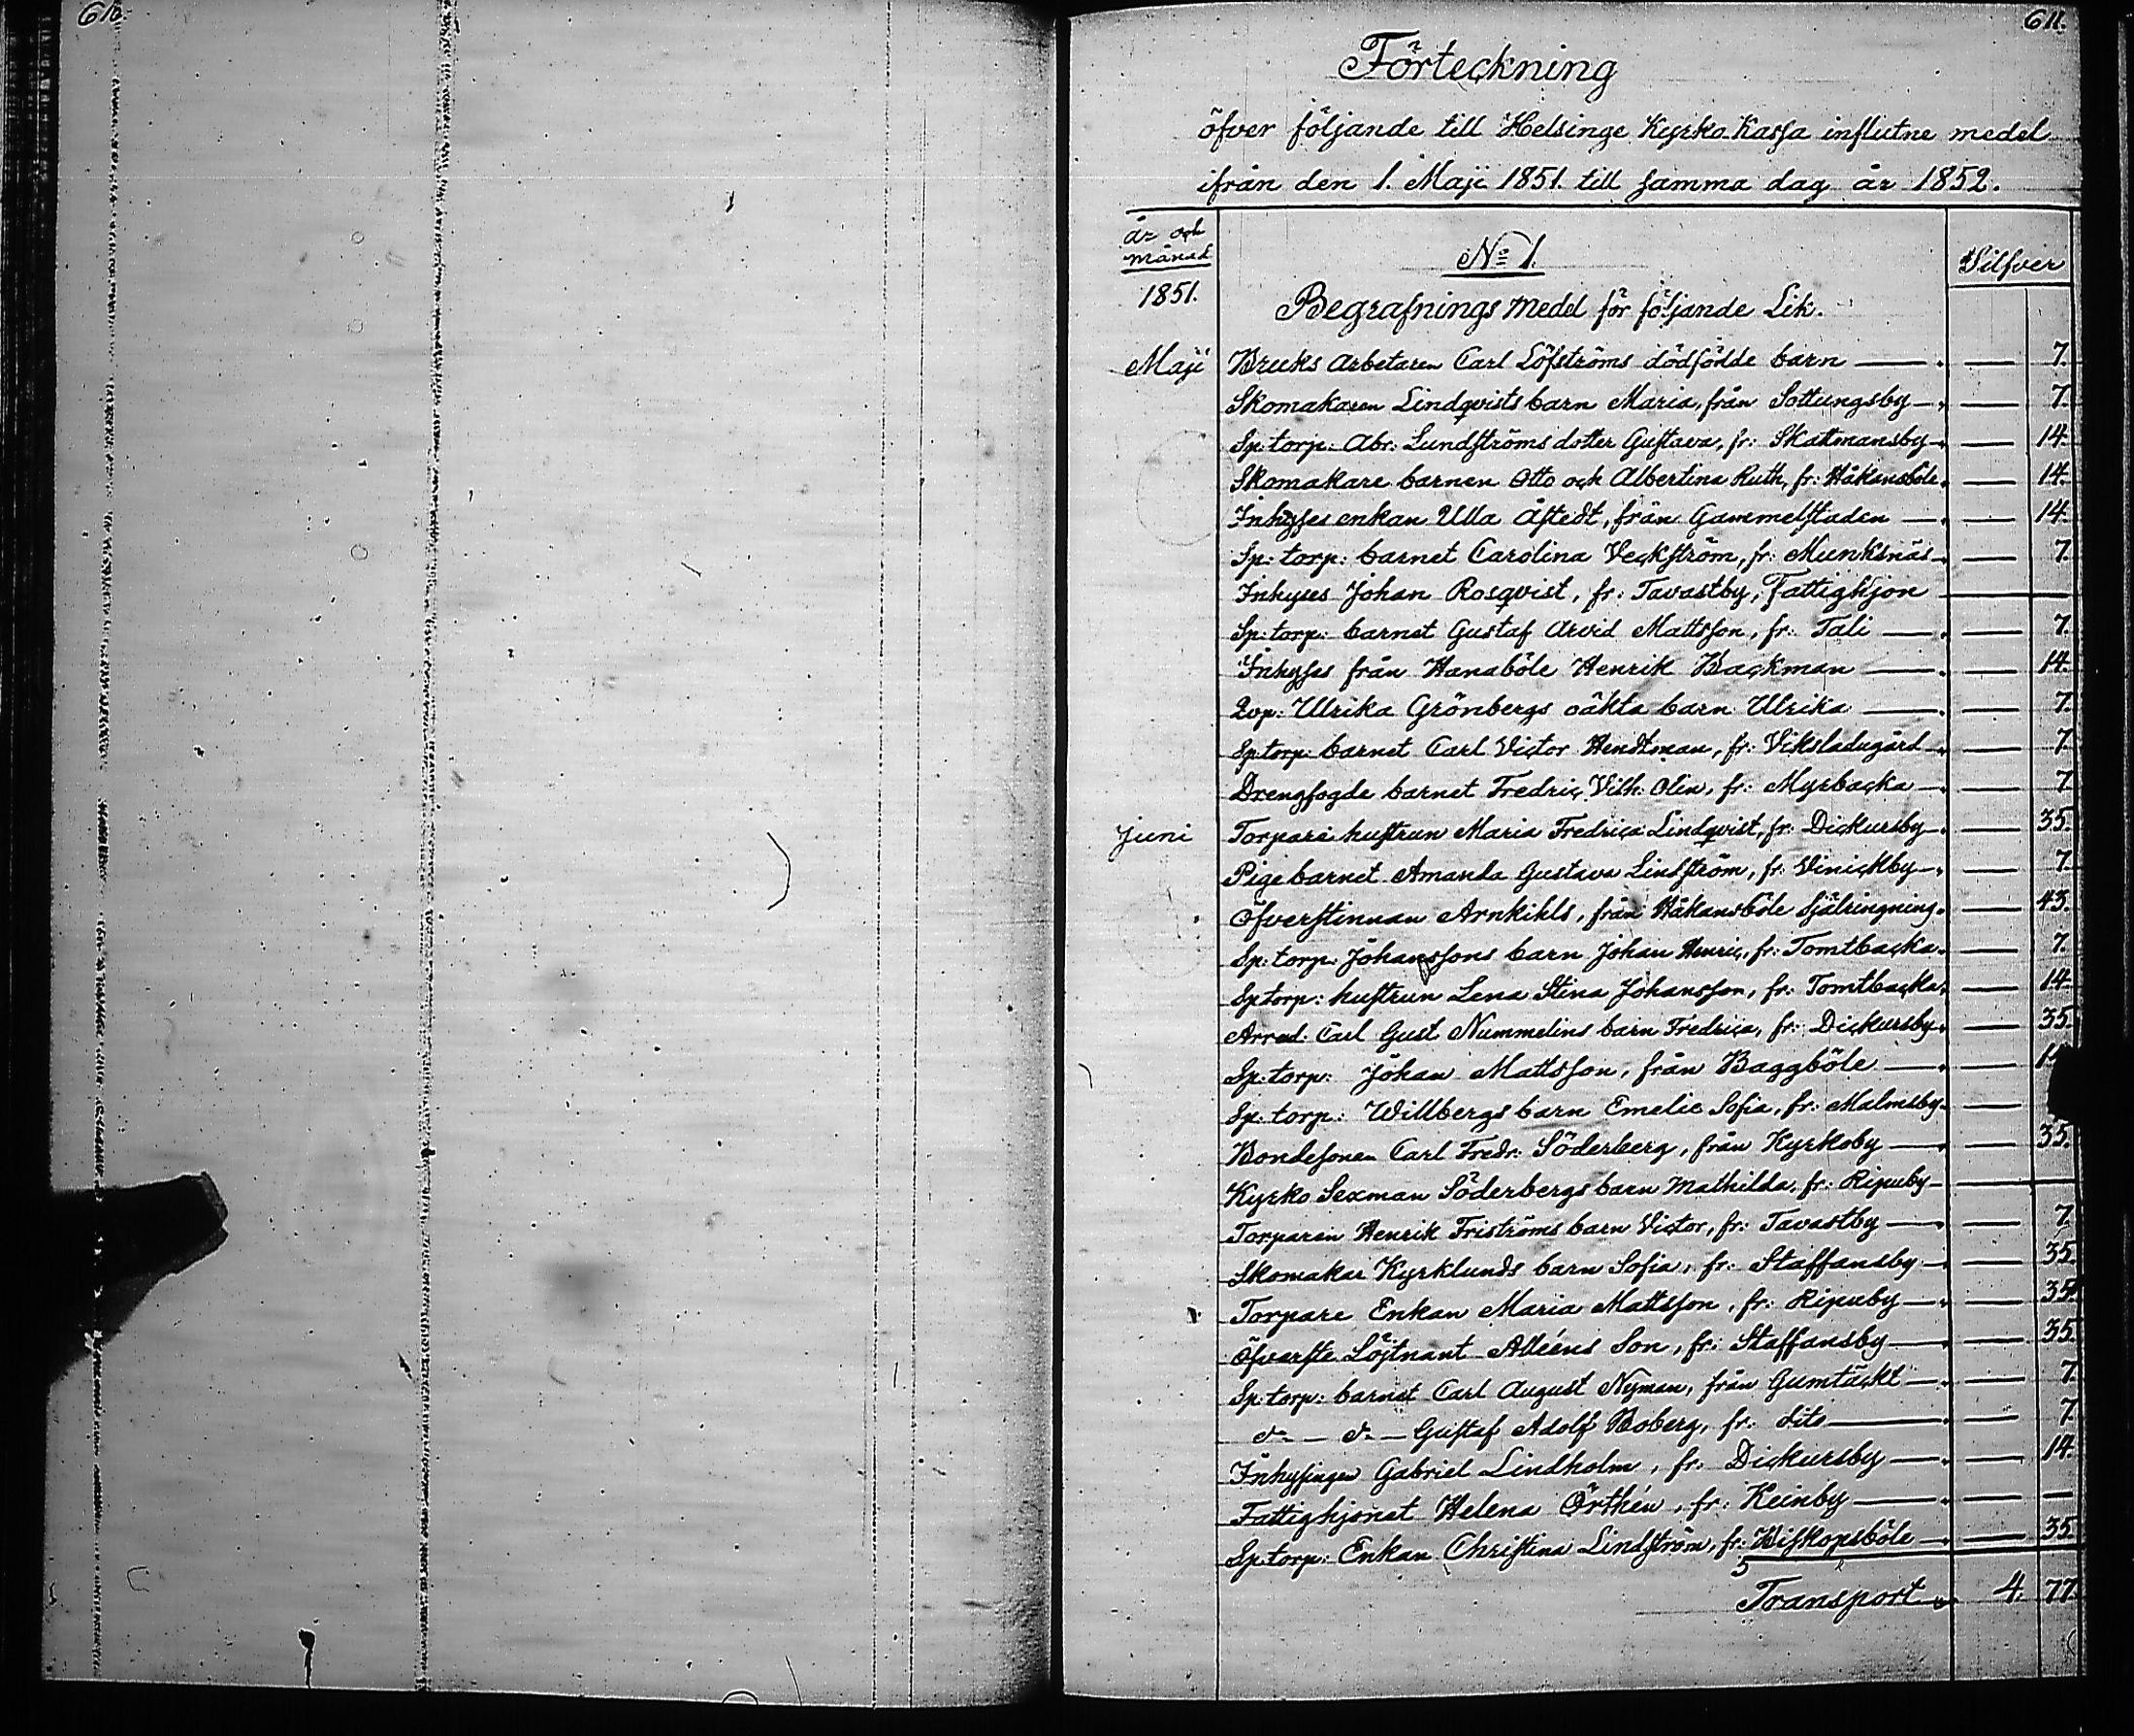 610.
611.
Förteckning
öfver följande till Helsinge Kyrko Kassa influtne medel
ifrån den 1. Maji 1851. till samma dag år 1852.
år och månad
No 1.
Silfver
1851.
Begrafnings medel för följande Lik.
Maji Bruks arbetaren Carl Löfströms dödfödde barn — — 7.
Skomakaren Lindqvists barn Maria, från Sottungsby — — 7.
Sp: torp: Abr: Lundströms dotter Gustava, fr: Skattmansby — — 14.
Skomakare barnen Otto och Albertina Ruth, fr: Håkansböle. — 14.
Inhyses enkan Ulla Åstedt, från Gammelstaden — — 14.
Sp: torp: barnet Carolina Veckström, fr: Munksnäs — — 7.
Inhyses Johan Rosqvist, fr: Tavastby, Fattighjon —
Sp: torp: barnet Gustaf Arvid Mattsson, fr: Tali — — 7.
Inhyses från Hanaböle Henrik Backman — — 14.
Qvp: Ulrika Grönbergs oäkta barn Ulrika — — 7.
Sp: torp: barnet Carl Victor Hendtman, fr: Viksladugård — — 7.
Drengfogde barnet Fredric Vilh: Olin, fr: Myrbacka — — 7
Juni Torpare hustrun Maria Fredrica Lindqvist, fr: Dickursby — — 35.
Pigebarnet Amanda Gustava Lindström, fr: Vinickby — — 7.
Öfverstinnan Arnkihls, från Håkansböle Själringning. — 43.
Sp: torp: Johanssons barn Johan Henric, fr: Tomtbacka. — 7.
Sp: torp: hustrun Lena Stina Johansson, fr: Tomtbacka. — 14
Arrend. Carl Gust. Nummelins barn Fredrica, fr: Dickursby. — 35.
Sp: torp: Johan Mattsson, från Baggböle — —
Sp: torp: Willbergs barn Emelie Sofia, fr: Malmsby. —
Bondesonen Carl Fredr: Söderberg, från Kyrkoby — — 35.
Kyrko Sexman Söderbergs barn Mathilda, fr: Ripuby —
Torparen Henrik Friströms barn Victor, fr: Tavastby — — 7.
Skomakar Kyrklunds barn Sofia, fr: Staffansby — — 35.
Torpare Enkan Maria Mattsson, fr: Ripuby — — 35.
Öfverste Löjtnant Alléens Son, fr: Staffansby — — 35.
Sp: torp: barnet Carl August Nyman, från Gumtäckt — — 7.
do — do — Gustaf Adolf Boberg, fr: dito — — 7.
Inhysingen Gabriel Lindholm, fr: Dickursby — — 14.
Fattighjonet Helena Örthén, fr: Keinby — — —
Sp: torp: Enkan Christina Lindström, fr: Biskopsböle — — 35.
5
Transport 4. 77.